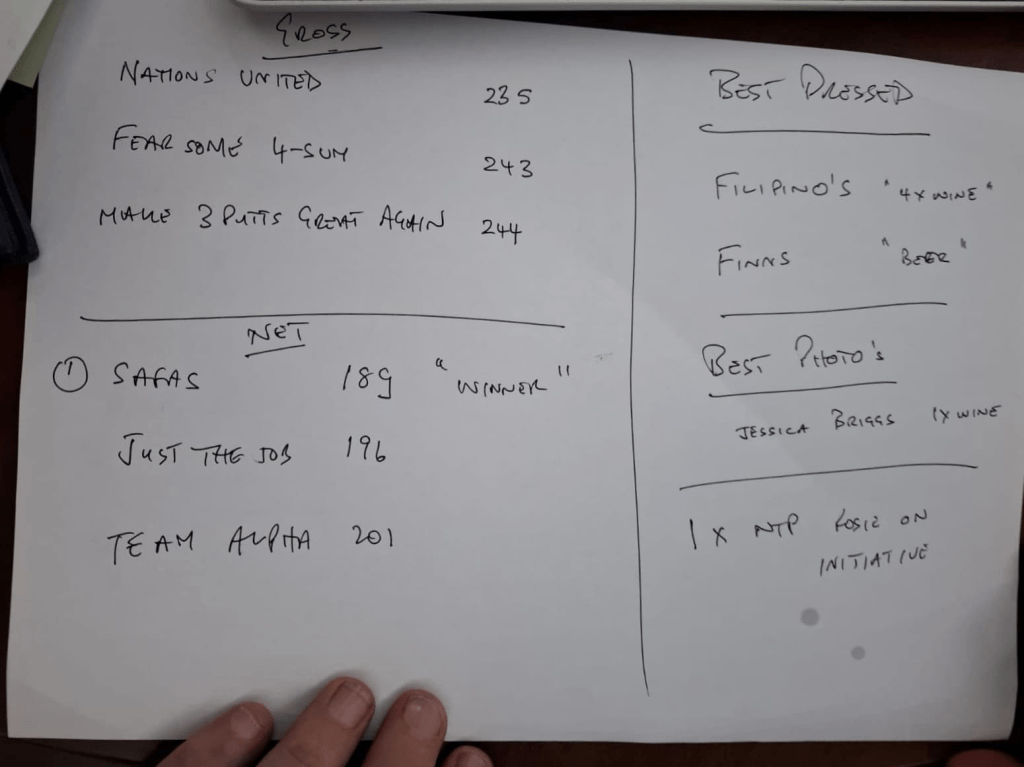 GROSS
NATIONS UNITED 235
FEARSOME 4-SUM 243
MAKE 3 PUTTS GREAT AGAIN 244
NET
① SAFAS 189 "WINNER"
JUST THE JOB 196
TEAM ALPHA 201
BEST DRESSED
FILIPINO'S "4X WINE"
FINNS "BEER"
BEST PHOTO'S
JESSICA BRIGGS 1X WINE
1 X NTP ROSIE ON
INITIATIVE